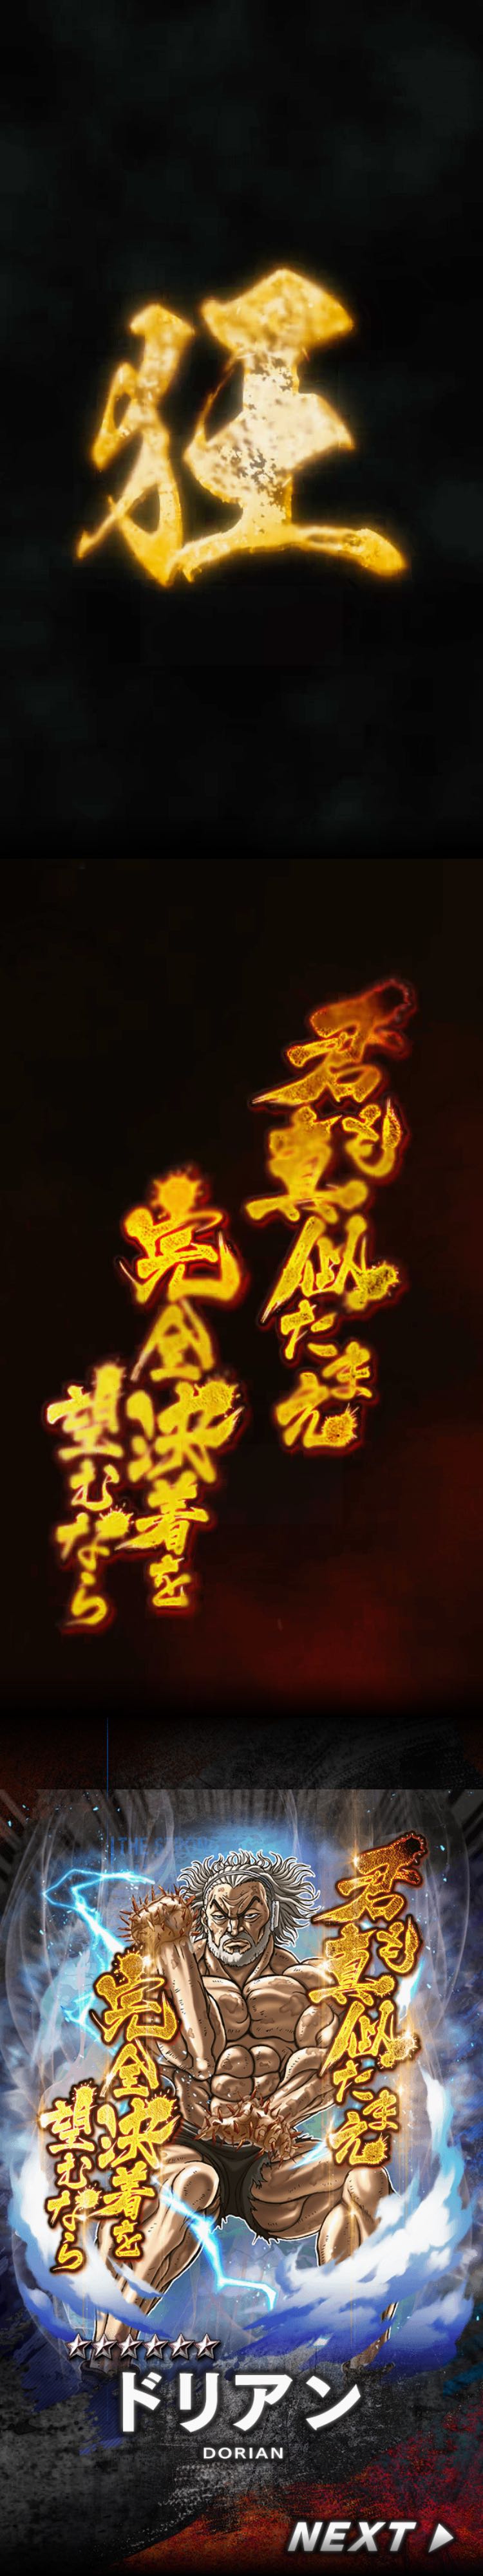 狂
君も
真似たまえ
完全決着を
望むなら
君も
真似たまえ
完全決着を
望むなら
ドリアン
DORIAN
NEXT